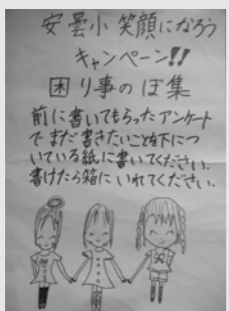 安曇小 笑顔になろう
キャンペーン!!
困り事のぼ集
前に書いてもらったアンケート
でまだ書きたいことを下につ
いている紙に書いてください。
書けたら箱にいれてください。